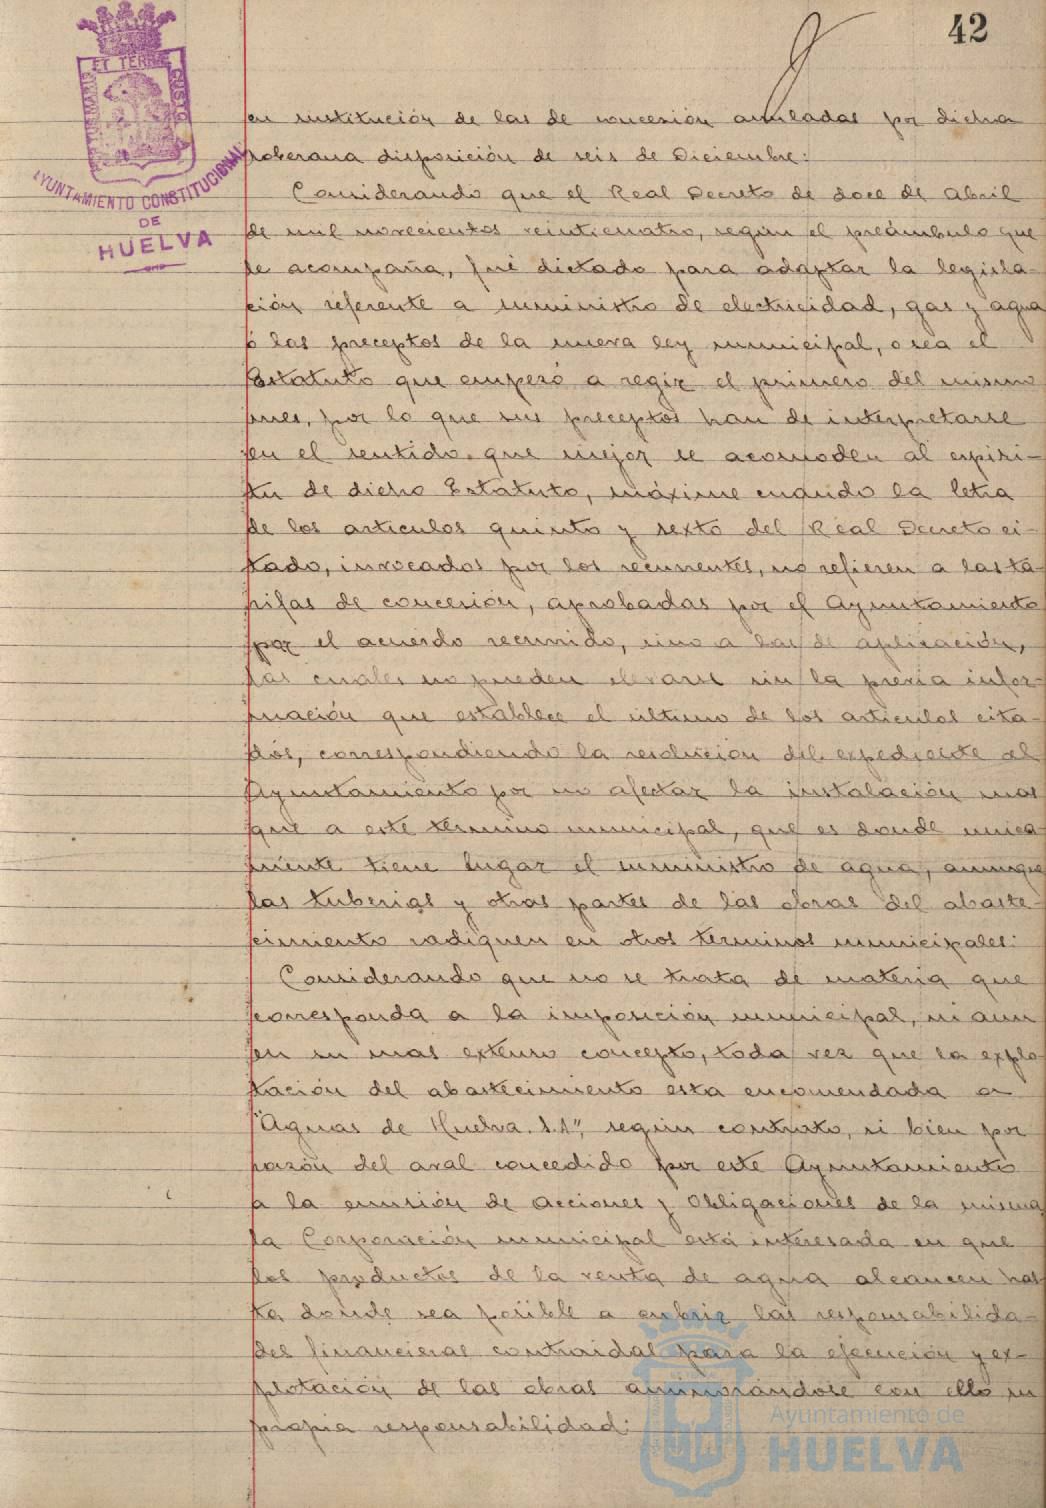 42
PORTUS MARIS ET TERRÆ CUSTODIA
AYUNTAMIENTO CONSTITUCIONAL
DE
HUELVA
en sustitución de las de concesión anuladas por dicha
soberana disposición de seis de Diciembre:
Considerando que el Real Decreto de doce de Abril
de mil novecientos veinticuatro, según el preámbulo que
le acompaña, fué dictado para adaptar la legisla-
ción referente a suministro de electricidad, gas y agua
á las preceptos de la nueva ley municipal, o sea el
Estatuto que empezó a regir el primero del mismo
mes, por lo que sus preceptos han de interpretarse
en el sentido que mejor se acomoden al espiri-
tu de dicho Estatuto, máxime cuando la letra
de los articulos quinto y sexto del Real Decreto ci-
tado, invocados por los recurrentes, no refieren a las ta-
rifas de concesión, aprobadas por el Ayuntamiento
por el acuerdo recurrido, sino a las de aplicación,
las cuales no pueden elevarse sin la previa infor-
mación que establece el último de los articulos cita-
dos, correspondiendo la resolución del expediente al
Ayuntamiento por no afectar la instalación mas
que a este término municipal, que es donde unica
mente tiene lugar el suministro de agua, aunque
las tuberias y otras partes de las obras del abaste-
cimiento radiquen en otros terminos municipales:
Considerando que no se trata de materia que
corresponda a la imposición municipal, ni aun
en su mas extenso concepto, toda vez que la explo
tación del abastecimiento esta encomendada a
"Aguas de Huelva S.A", según contrato, si bien por
razón del aval concedido por este Ayuntamiento
a la emisión de Acciones y Obligaciones de la misma
la Corporación municipal está interesada en que
los productos de la renta de agua alcancen has
ta donde sea posible a cubrir las responsabilida-
des financieras contraidas para la ejecución y ex-
plotación de las obras aminorándose con ello su
propia responsabilidad:
Ayuntamiento de
HUELVA